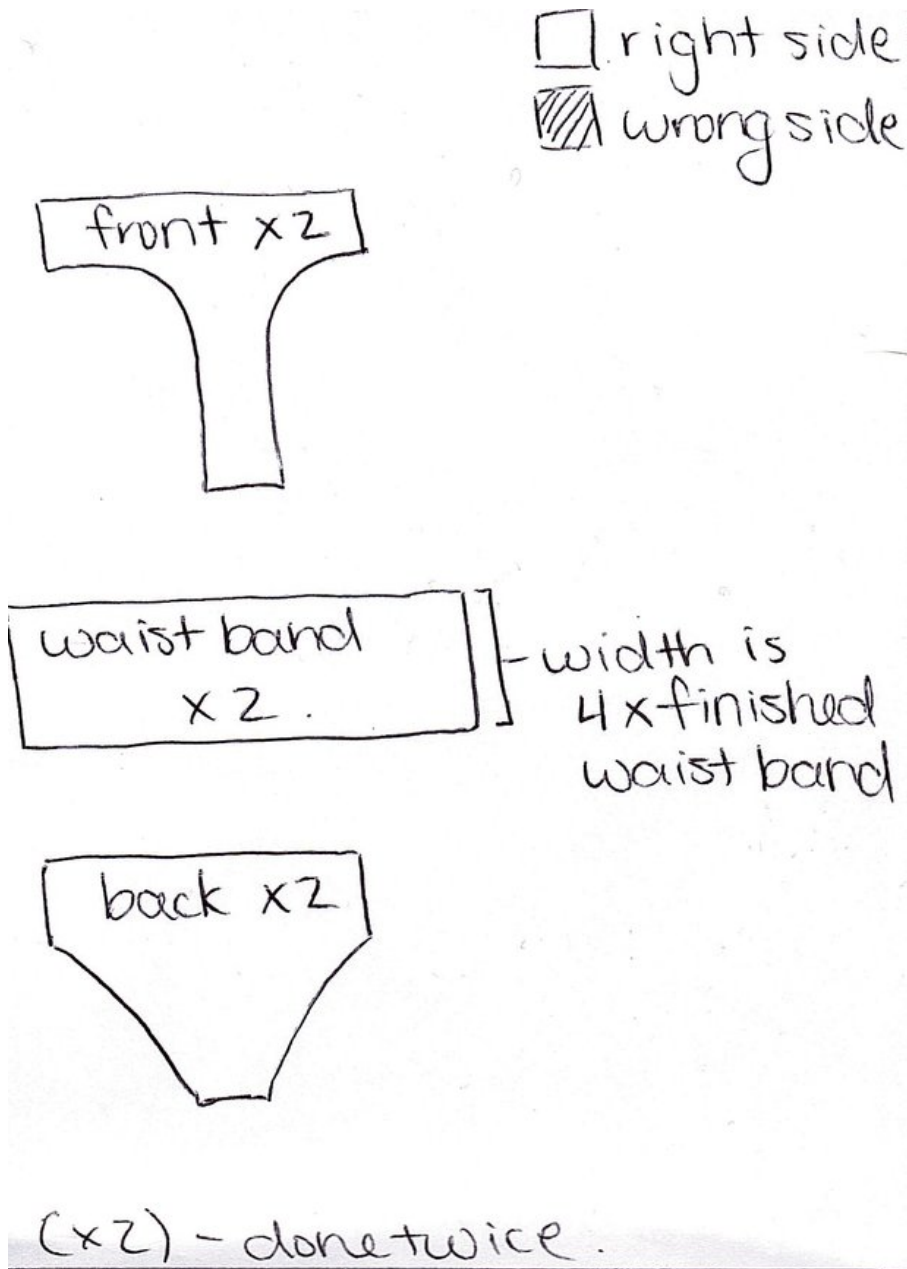 right side
wrong side
front x2
waist band
x2.
width is
4xfinished
waist band
back x2
(x2) - done twice.